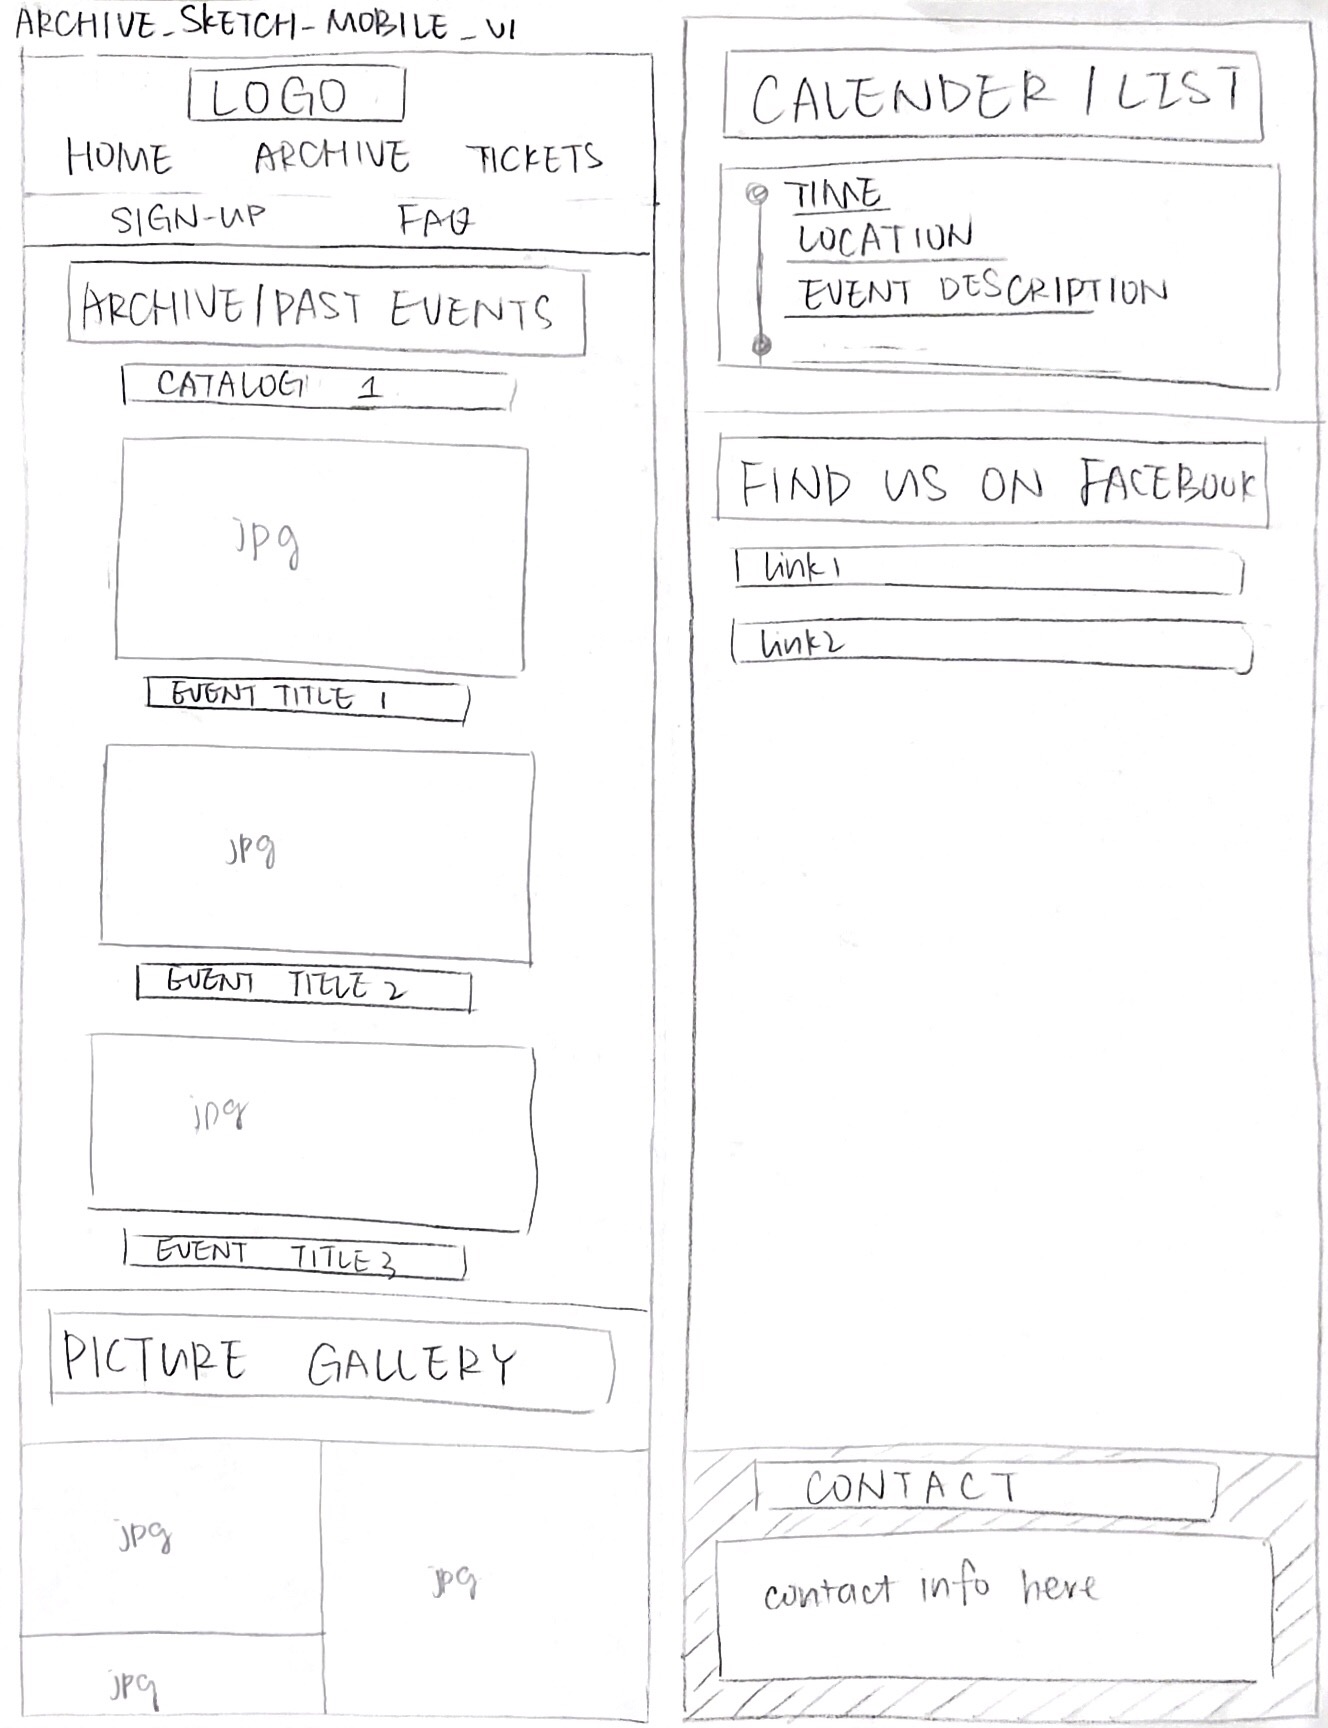 ARCHIVE_SKETCH-MOBILE_V1
LOGO
HOME ARCHIVE TICKETS
SIGN-UP FAQ
ARCHIVE/PAST EVENTS
CATALOG 1
jpg
EVENT TITLE 1
jpg
EVENT TITLE 2
jpg
EVENT TITLE 3
PICTURE GALLERY
jpg
jpg
jpg
CALENDER / LIST
TIME
LOCATION
EVENT DESCRIPTION
FIND US ON FACEBOOK
link 1
link 2
CONTACT
contact info here